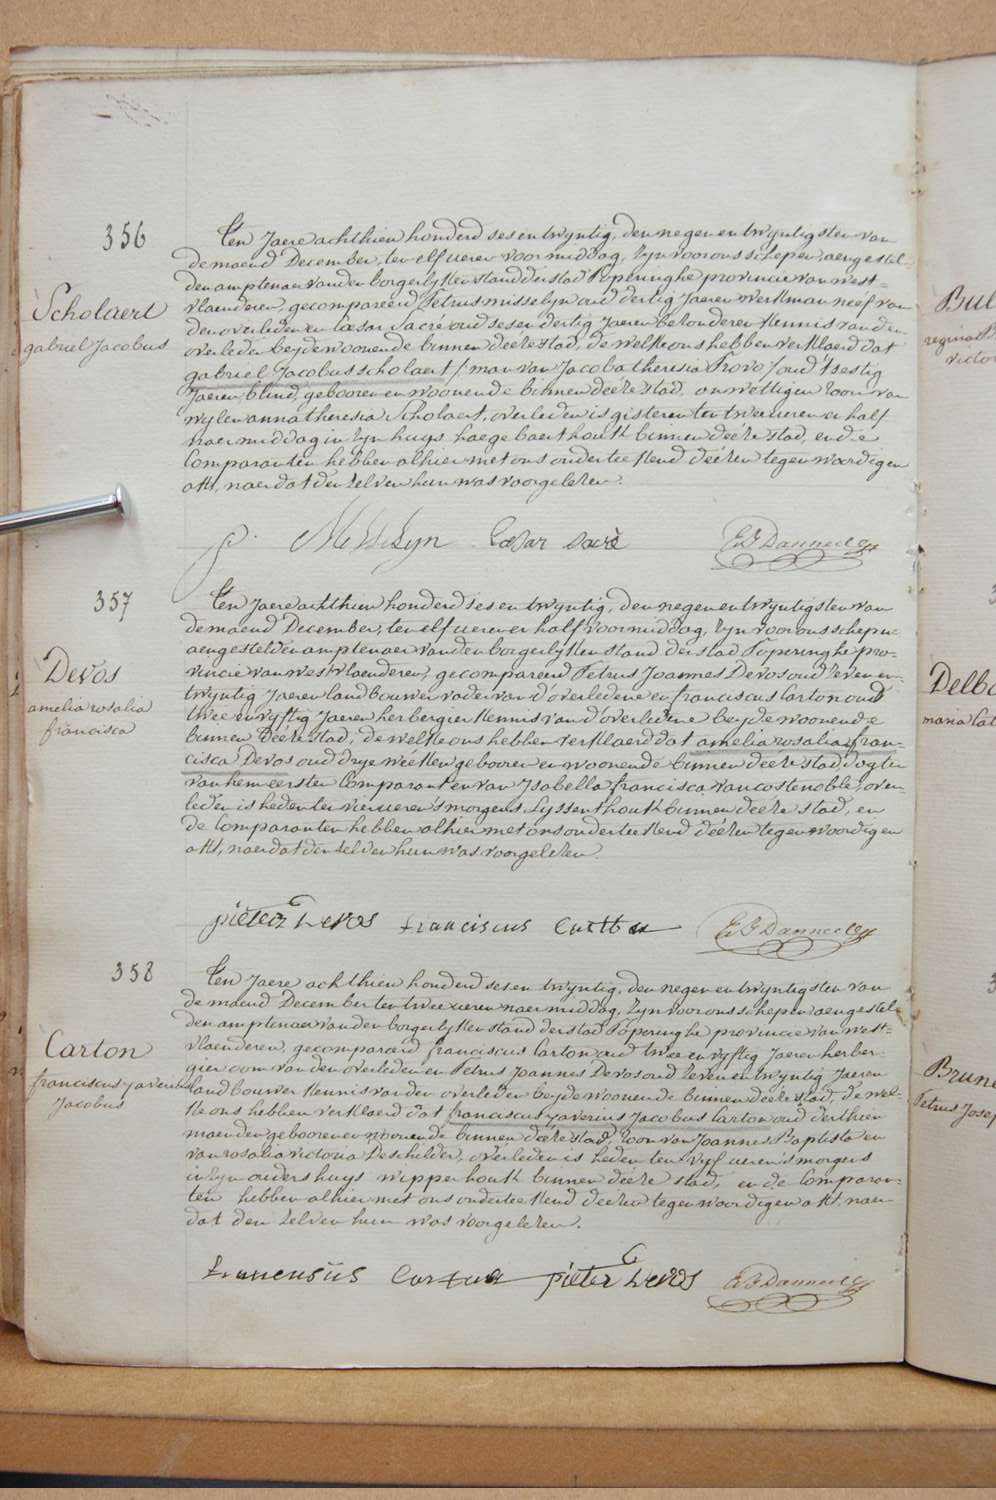 356
Scholaert
gabriel Jacobus
Ten Jaere achthien honderd ses en twyntig, den negen en twyntigsten van
de maend December, ten elf ueren voormiddag, Zyn voor ons schepen, aengestel-
den amptenaer van den borgerlyken stand der stad Poperinghe provincie van west-
vlaenderen, gecompareerd Petrus misselyn oud dertig Jaeren werkman neef van
den overleden en Cæsar Sacré oud ses en dertig Jaeren bezonderen kennis van den
overleden beyde woonende binnen deéze stad, de welke ons hebben verklaerd dat
gabriel Jacobus scholaert / man van Jacoba theresia Provo / oud t'sestig
Jaeren, blind, gebooren en woonende binnen deéze stad, onwettigen Zoon van
wylen anna theresia Scholaert, overleden is gisteren ten twee ueren en half
naer middag in Zyn huys haegebaert houk binnen deéze stad, en de
Comparanten hebben alhier met ons onderteekend deézen tegenwoordigen
akt, naer dat den Zelven hun was voorgelezen.
p. Messelyn Cæsar Sacré E P Danneel
357
Devos
amelia rosalia
francisca
Ten Jaere achthien honderd ses en twyntig, den negen en twyntigsten van
de maend December, ten elf ueren en half voormiddag, Zyn voor ons schepen
aengestelden amptenaer van den borgerlyken stand der stad Poperinghe pro-
vincie van west vlaenderen, gecompareerd Petrus Joannes Devos oud Zeven en
twyntig Jaeren landbouwer vader van d'overledene en franciscus Carton oud
twee en vyftig Jaeren herbergier kennis van d'overledene beyde woonende
binnen deéze stad, de welke ons hebben verklaerd dat amelia rosalia fran-
cisca Devos oud drye weéken gebooren en woonende binnen deéze stad dogter
van hem eersten Comparant en van Isabella francisca vancostenoble, over-
leden is heden ten vier ueren s'morgens Lyssenthouk binnen deéze stad, en
de Comparanten hebben alhier met ons onderteekend deézen tegenwoordigen
akt, naer dat den Zelven hun was voorgelezen.
pieter Devos franciscus Carton E P Danneel
358
Carton
franciscus xaverius
Jacobus
Ten Jaere achthien honderd ses en twyntig, den negen en twyntigsten van
de maend December ten twee ueren naermiddag, Zyn voor ons schepen aengestel-
den amptenaer van den borgerlyken stand der stad Poperinghe provincie van west-
vlaenderen, gecompareerd franciscus Carton oud twee en vyftig Jaeren herber-
gier oom van den overleden en Petrus Joannes Devos oud Zeven en twyntig Jaeren
landbouwer kennis van den overleden beyde woonende binnen deéze stad, de wel-
ke ons hebben verklaerd dat franciscus xaverius Jacobus Carton oud derthien
maenden gebooren en woonende binnen deéze stad, Zoon van Joannes Baptista en
van rosalia victoria Deschilder, overleden is heden ten vyf ueren s'morgens
in Zyn ouders huys wipperhouk binnen deéze stad, en de Comparan-
ten hebben alhier met ons onderteekend deézen tegenwoordigen akt, naer
dat den Zelven hun was voorgelezen.
franciscus Carton pieter Devos E P Danneel
Bul
regina
victo
Delb
maria Cat
Brune
Petrus Josep